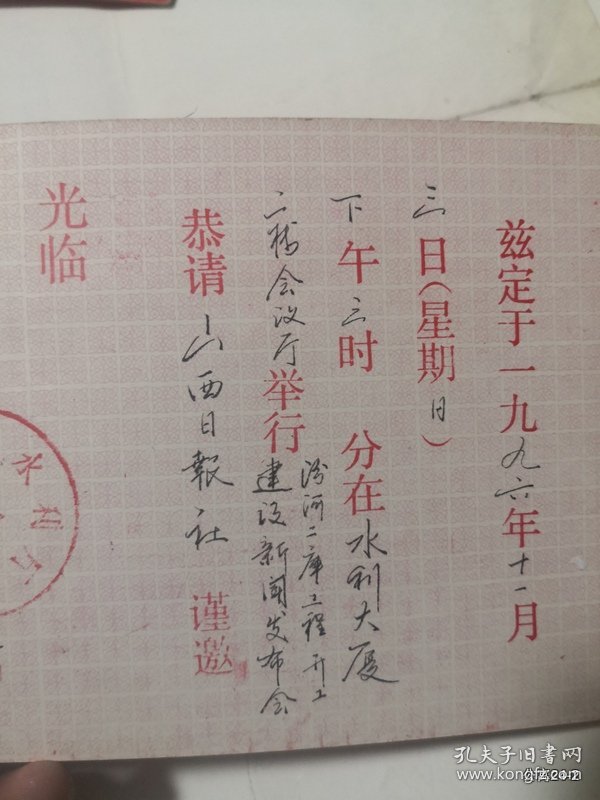 兹定于一九九六年十一月
三日(星期日)
下午三时 分在水利大厦
二楼会议厅举行汾河二库工程开工
建设新闻发布会
恭请山西日報社 谨邀
光临
水利
孔夫子旧书网
www.kongfz.com